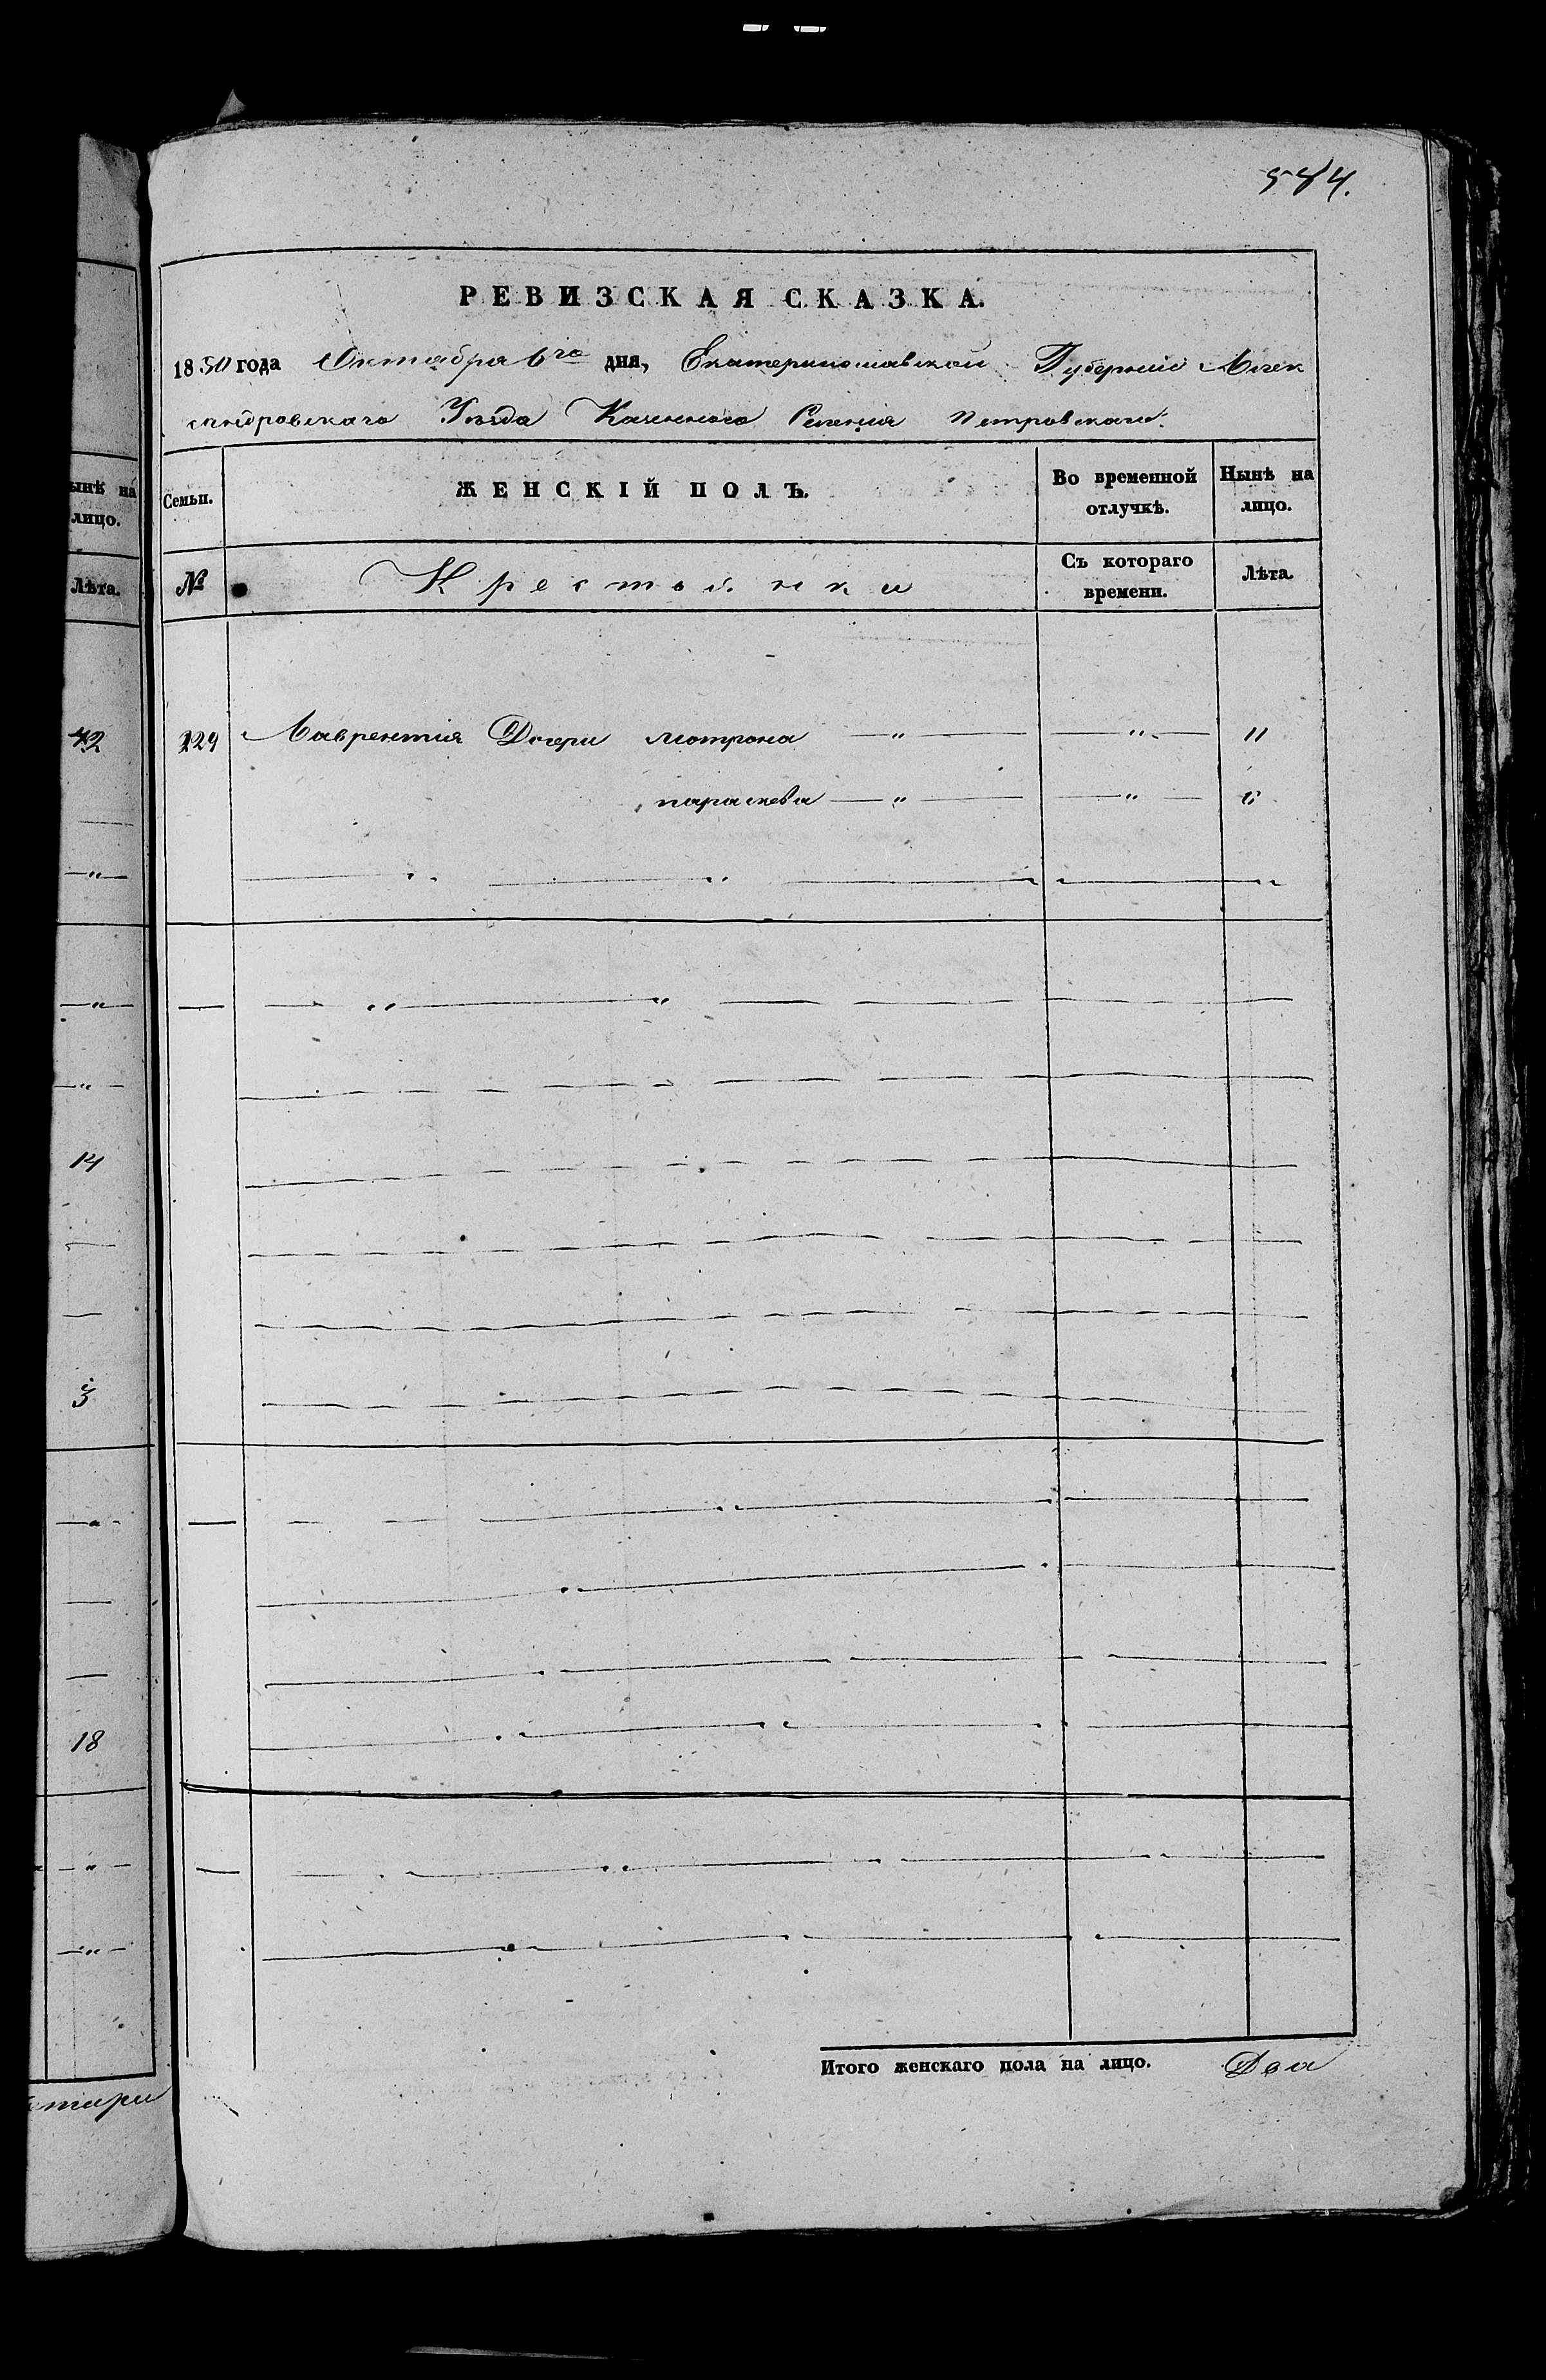 584.
РЕВИЗСКАЯ СКАЗКА.
1850 года Октября 6го дня, Екатеринославской Губерніи Алек
сандровскаго Уѣзда Казеннаго Селенія Петровскаго.
ынѣ на
лицо.
Лѣта.
42
14
3
18
тыри
Семьи.
ЖЕНСКІЙ ПОЛЪ.
Во временной
отлучкѣ.
Нынѣ на
лицо.
№
Крестьянки
Съ котораго
времени.
Лѣта.
124 Лаврентія Дочери мотрона — " — — " — 11
параскева — " — — " — 6
Итого женскаго пола на лицо. Два